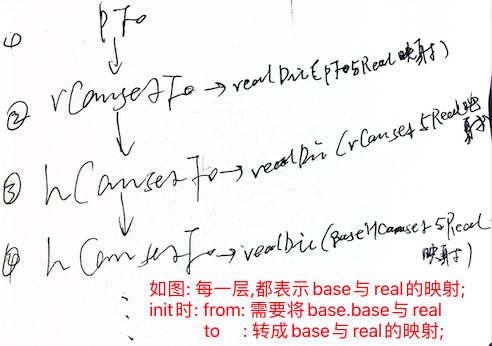 ① pFo
② rCansetFo → realDic(pFo与Real映射)
③ hCansetFo → realDic(rCanset与Real映射)
④ hCansetFo → realDic(BaseHCanset与Real映射)
如图: 每一层,都表示base与real的映射;
init时: from: 需要将base.base与real
to : 转成base与real的映射;